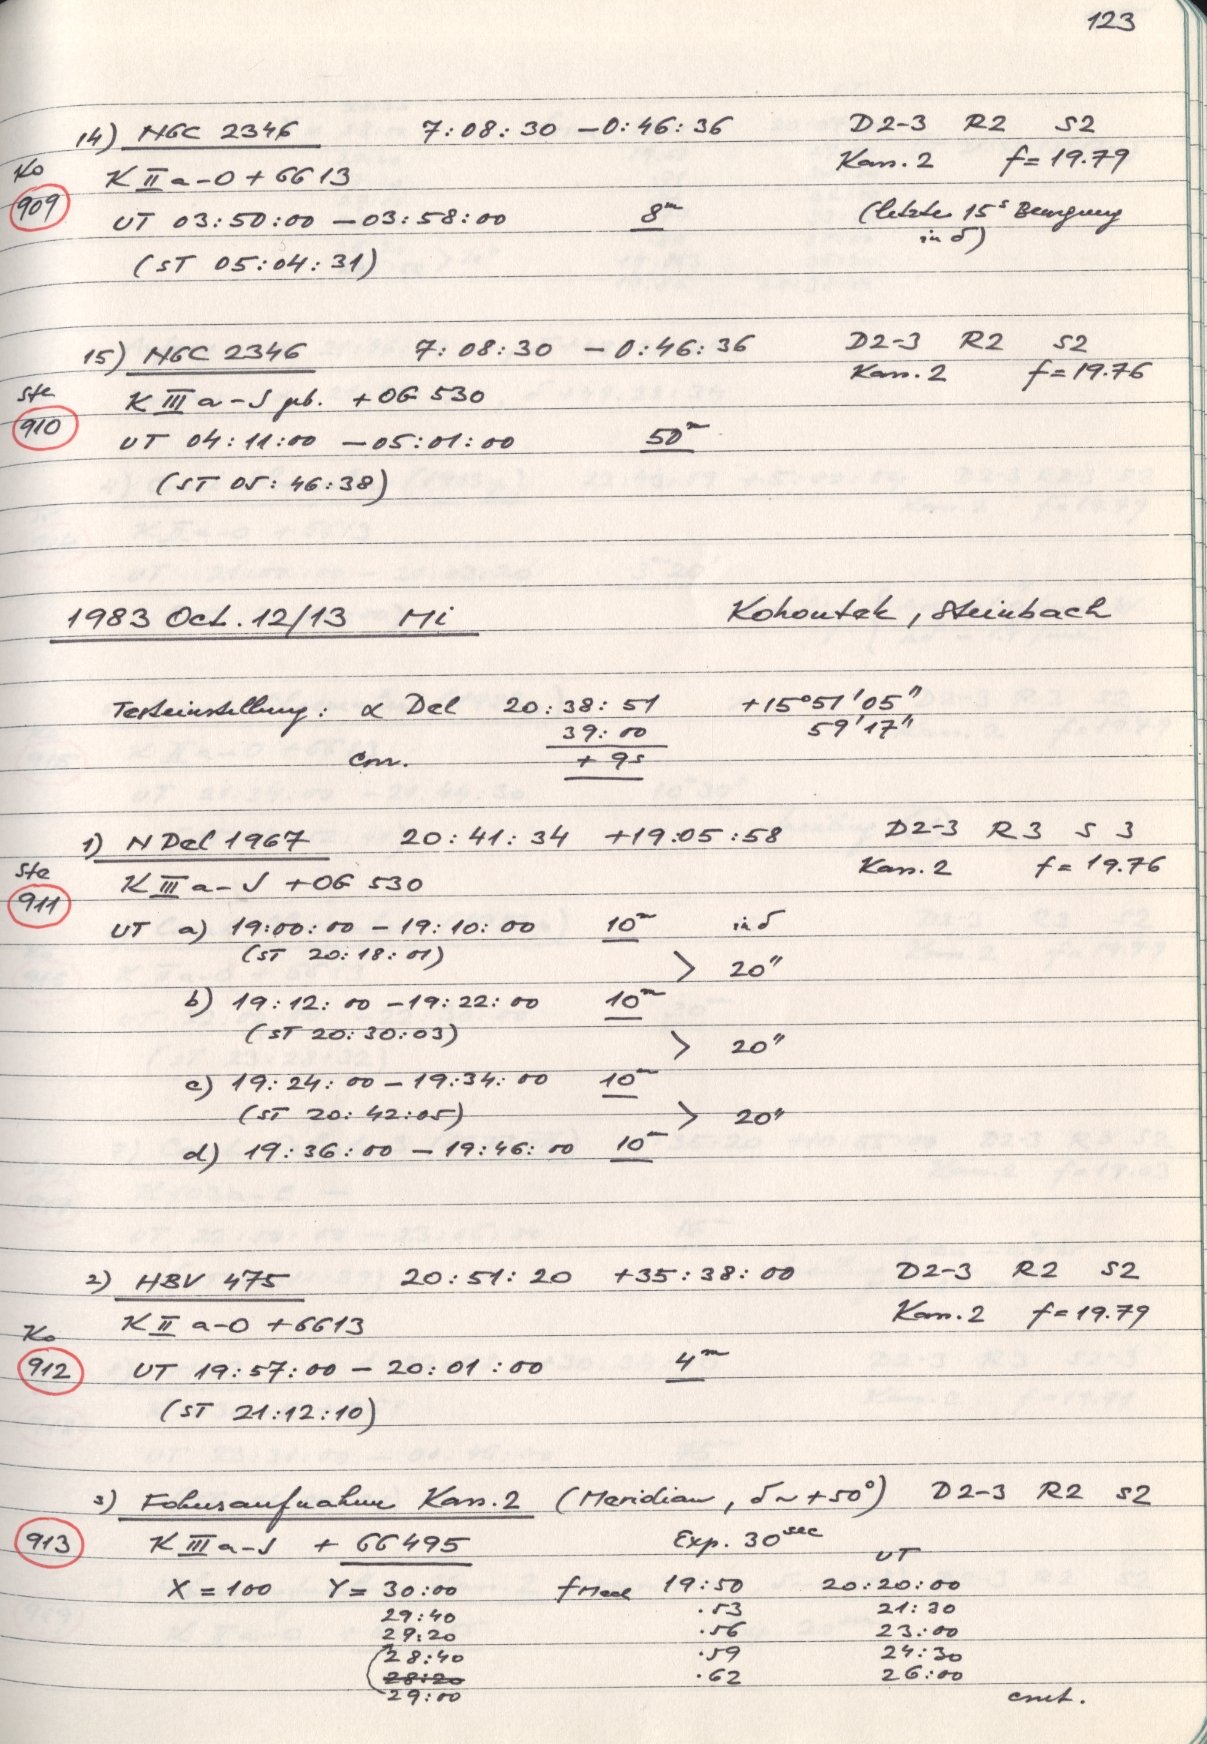 123
14) NGC 2346 7:08:30 -0:46:36 D2-3 R2 S2
Ko K II a-O + GG13 Kass.2 f=19.79
909 UT 03:50:00 - 03:58:00 8m (letzte 15s Bewegung
in δ)
(ST 05:04:31)
15) NGC 2346 7:08:30 -0:46:36 D2-3 R2 S2
Kass.2 f=19.76
Ste K III a-J pb. + OG 530
910 UT 04:11:00 - 05:01:00 50m
(ST 05:46:38)
1983 Oct. 12/13 Mi Kohoutek, Steinbach
Testeinstellung: α Del 20:38:51 +15°51'05"
39:00 59'17"
Corr. + 9s
1) N Del 1967 20:41:34 +19:05:58 D2-3 R3 S3
Kass.2 f=19.76
Ste K III a-J + OG 530
911 UT a) 19:00:00 - 19:10:00 10m in δ
(ST 20:18:01) > 20"
b) 19:12:00 - 19:22:00 10m
(ST 20:30:03) > 20"
c) 19:24:00 - 19:34:00 10m
(ST 20:42:05) > 20"
d) 19:36:00 - 19:46:00 10m
2) HBV 475 20:51:20 +35:38:00 D2-3 R2 S2
Ko K II a-O + GG13 Kass.2 f=19.79
912 UT 19:57:00 - 20:01:00 4m
(ST 21:12:10)
3) Fokusaufnahme Kass.2 (Meridian, δ~+50°) D2-3 R2 S2
913 K III a-J + GG495 Exp. 30sec
UT
X=100 Y=30:00 f 19:50 20:20:00
29:40 .53 21:30
29:20 .56 23:00
28:40 .59 24:30
28:20 .62 26:00
29:00